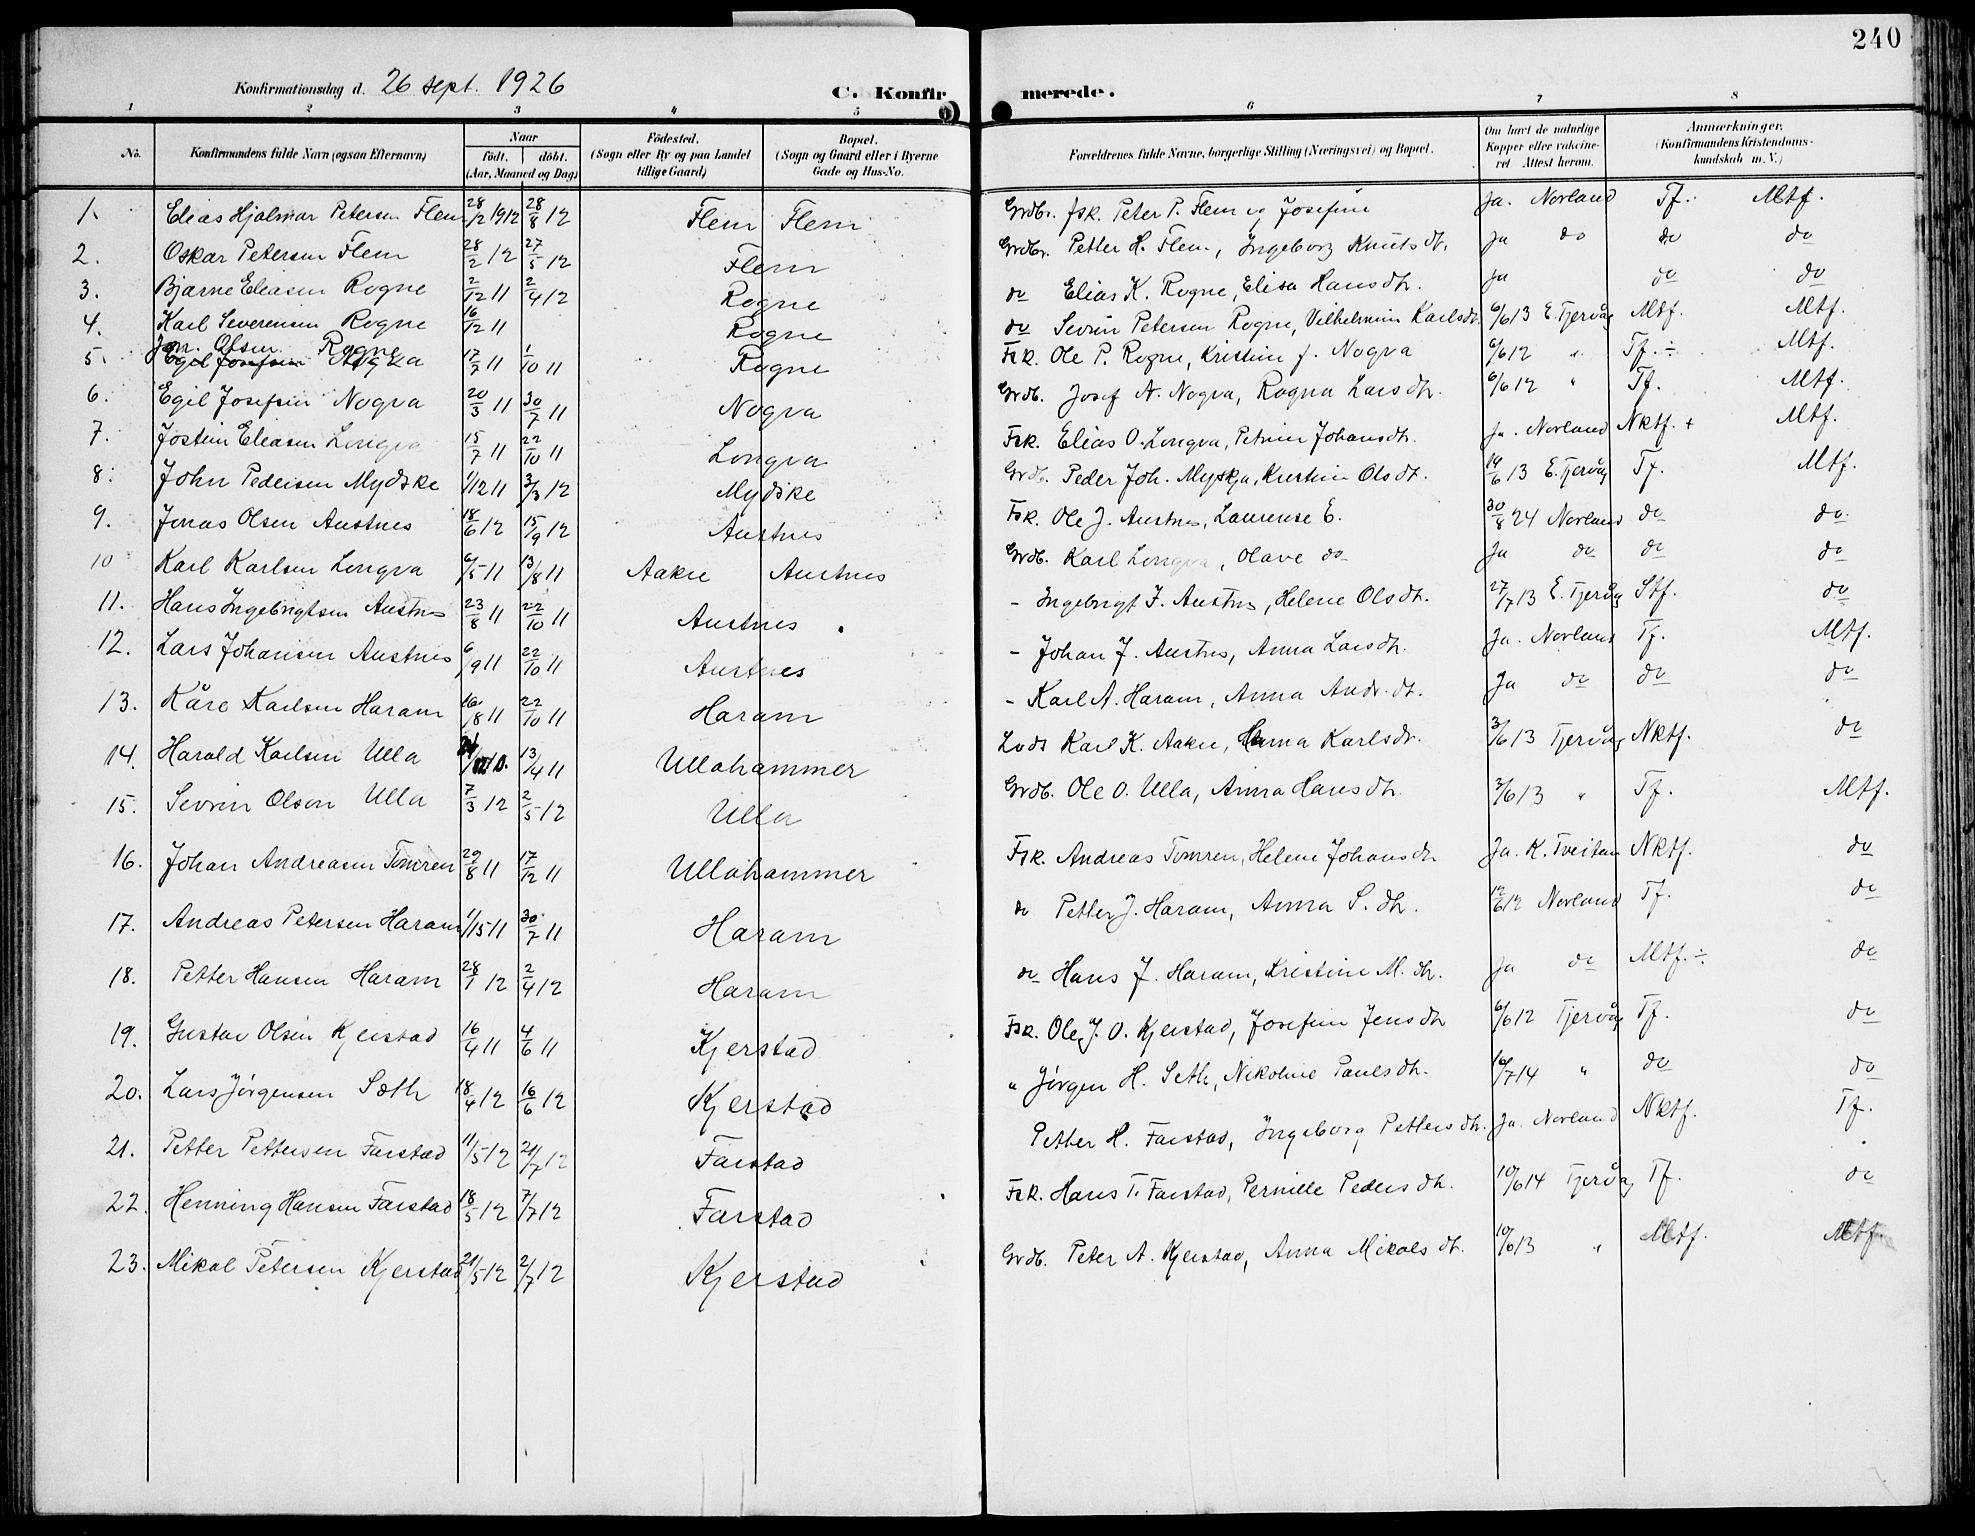 240
Konfirmationsdag d. 26 sept. 1926
C. Konfirmerede.
1 2 3 4 5 6 7 8
No. Konfirmandens fulde Navn (ogsaa Efternavn) Naar født. døbt. (Aar, Maaned og Dag) Fødested. (Sogn eller By og paa Landet tillige Gaard) Bopæl. (Sogn og Gaard eller i Byerne Gade og Hus-No. Forældrenes fulde Navne, borgerlige Stilling (Næringsvei) og Bopæl. Om havt de naturlige Kopper eller vakcineret Attest herom. Anmærkninger. (Konfirmandens Kristendomskundskab m. V.)
1. Elias Hjalmar Petersen Flem 28/2 1912 28/8 12 Flem Flem Grdbr. fsk. Peter P. Flem og Josefine Ja. Norland Tf. Mtf.
2. Oskar Petersen Flem 28/2 12 27/5 12 Flem Grdbr. Petter H. Flem, Ingeborg Knutsdt. Ja do do do
3. Bjarne Eleasen Rogne 2/12 11 2/4 12 Rogne do Elias K. Rogne, Elisa Hansdt. Ja do do
4. Karl Severensen Rogne 16/12 11 Rogne do Sevrin Petersen Rogne, Vilhelmine Karlsdt. 6/6 13 E. Tjervåg Mtf. Mtf.
5. Jon. Olsen Rogne 17/7 11 1/10 11 Rogne Fsk. Ole P. Rogne, Kristine f. Nogva 6/6 12 " Tf. ÷ Mtf.
6. Egil Josefsen Nogva 20/3 11 30/7 11 Nogva Grdb. Josef N. Nogva, Ragna Larsdt. 6/6 12 " Tf. Mtf.
7. Jostein Eleasen Longva 15/7 11 22/10 11 Longva Fsk. Elias O. Longva, Petrine Johansdt. Ja. Norland Nktf. + Mtf.
8. John Pedersen Mydske 1/12 11 3/3 12 Mydske Grdb. Peder Joh. Myskja, Kristine Olsdt. 19/6 13 E. Tjervåg Tf. Mtf.
9. Jonas Olsen Austnes 18/6 12 15/9 12 Austnes Fsk. Ole J. Austnes, Laurense E. 30/8 24 Norland do do
10 Karl Karlsen Longva 6/5 11 13/8 11 Aakre Austnes Grdb. Karl Longva, Olave do Ja do do do
11. Hans Ingebrigtsen Austnes 23/8 11 22/10 11 Austnes - Ingebrigt J. Austnes, Helene Olsdt. 27/7 13 E. Tjervåg Stf. do
12. Lars Johansen Austnes 6/9 11 22/10 11 Austnes - Johan J. Austnes, Anna Larsdt. Ja. Norland Tf. Mtf.
13. Kåre Karlsen Haram 16/8 11 22/10 11 Haram - Karl A. Haram, Anna Andr. dt. Ja do do do
14. Harald Karlsen Ulla 13/4 11 Ullahammer Lods Karl K. Aakre, Karlsdt. 3/6 13 Tjervåg Nktf. do
15. Sevrin Olson Ulla 7/3 12 2/5 12 Ulla Grdb. Ole O. Ulla, Anna Hansdt. 3/6 13 " Tf. Mtf.
16. Johan Andreasen Tomren 29/8 11 17/12 11 Ullahammer Fsk. Andreas Tomren, Helene Johansdt. Ja. K. Tveitan Nktf. do
17. Andreas Petersen Haram 1/5 11 30/7 11 Haram do Petter J. Haram, Anna S. dt. 12/6 12 Norland Tf. do
18. Petter Hansen Haram 28/1 12 2/4 12 Haram do Hans J. Haram, Kristine M. dt. Ja do Mtf. ÷ do
19. Gustav Olsen Kjerstad 16/4 11 4/6 11 Kjerstad Fsk. Ole J. O. Kjerstad, Josefine Jensdt 6/6 12 Tjervåg Tf. do
20. Lars Jørgensen Sæth 18/4 12 16/6 12 Kjerstad " Jørgen H. Seth, Nikoline Paulsdt. 16/7 14 " do do
21. Petter Pettersen Farstad 11/5 12 21/7 12 Farstad Petter H. Farstad, Ingeborg Pettersdt. Ja. Norland Nktf. Tf.
22. Henning Hansen Farstad 18/5 12 7/7 12 Farstad Fsk. Hans T. Farstad, Pernille Pedersdt. 10/6 14 Tjervåg Tf. do
23. Mikal Petersen Kjerstad 21/5 12 2/7 12 Kjerstad Grdb. Peter A. Kjerstad, Anna Mikalsdt. 10/6 13 " Mtf. Mtf.